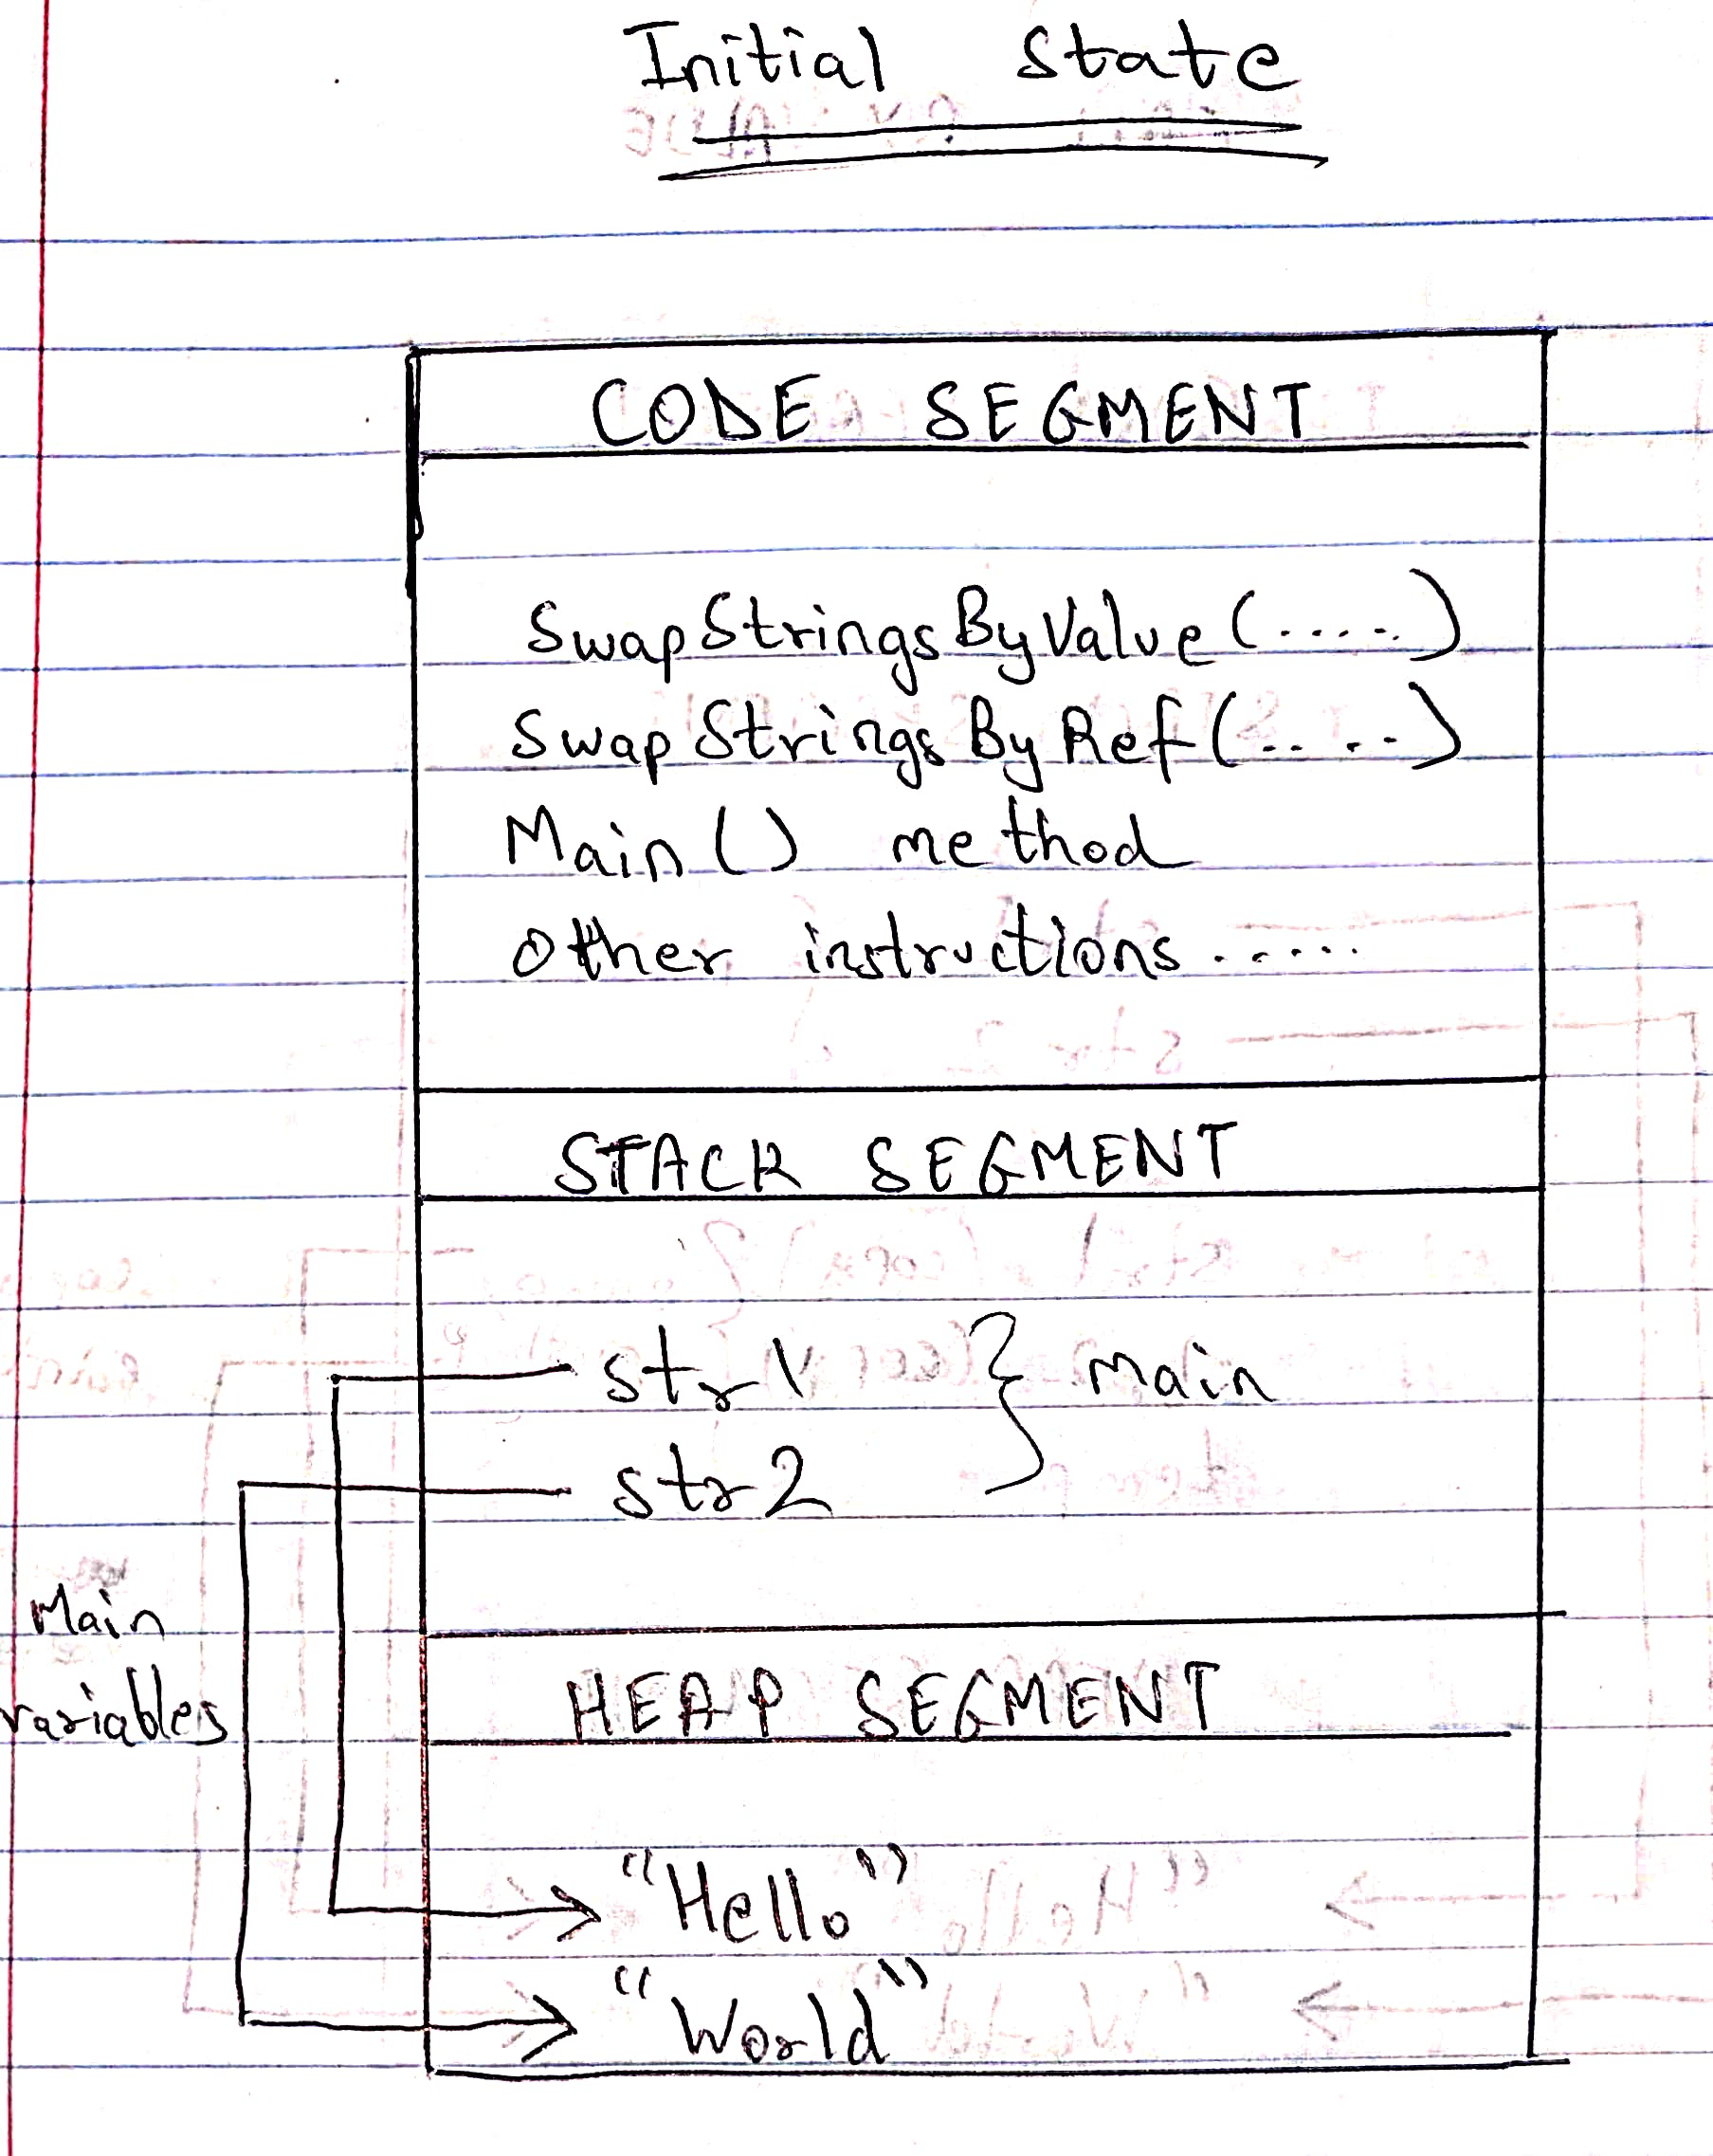 Initial State
CODE SEGMENT
SwapStringsByValue(.....)
SwapStringsByRef(.....)
Main() method
Other instructions.....
STACK SEGMENT
str1 } Main
str2
Main
Variables
HEAP SEGMENT
"Hello"
"World"